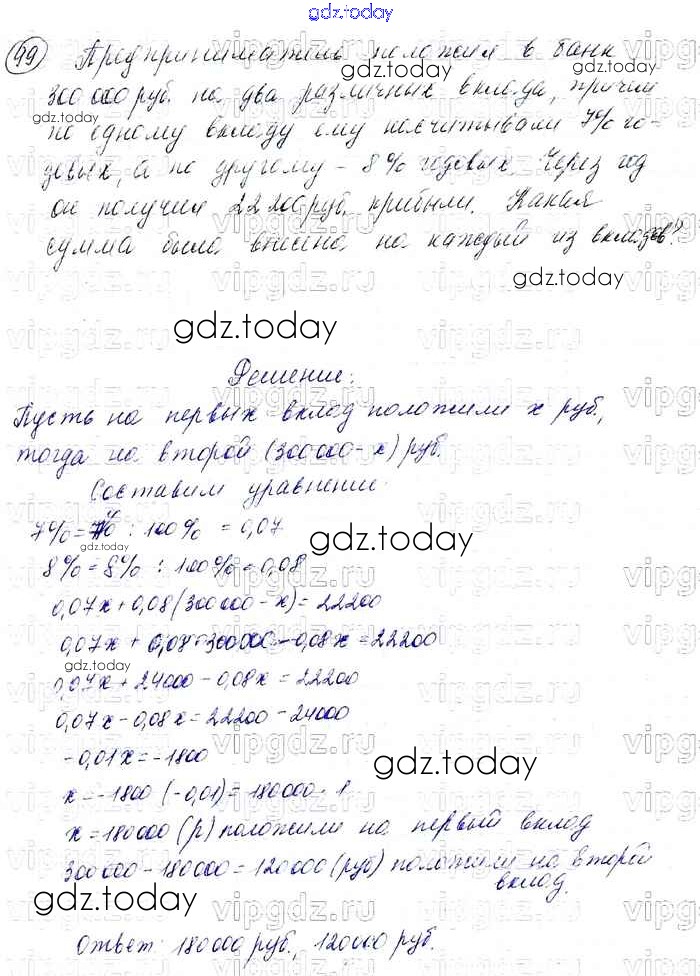 gdz.today
99 Предприниматель положил в банк
gdz.today
300 000 руб. на два различных вклада, причём
gdz.today
по одному вкладу ему насчитывали 7% го-
довых, а по другому – 8% годовых. Через год
gdz.today
он получил 22 200 руб. прибыли. Какая
сумма была внесена на каждый из вкладов?
gdz.today
gdz.today
Решение:
Пусть на первых вклад положили x руб.,
тогда на второй (300 000 - x) руб.
Составим уравнение:
7% = 7% : 100% = 0,07
gdz.today
gdz.today
8% = 8% : 100% = 0,08
0,07x + 0,08(300000 - x) = 22200
0,07x + 0,08·300000 - 0,08x = 22200
gdz.today
0,07x + 24000 - 0,08x = 22200
0,07x - 0,08x = 22200 - 24000
-0,01x = -1800
gdz.today
x = -1800 (-0,01) = 180000 · 1
x = 180000 (р) положили на первый вклад
300000 - 180000 = 120000 (руб) положили на второй
вклад.
gdz.today
gdz.today
Ответ: 180000 руб., 120000 руб.